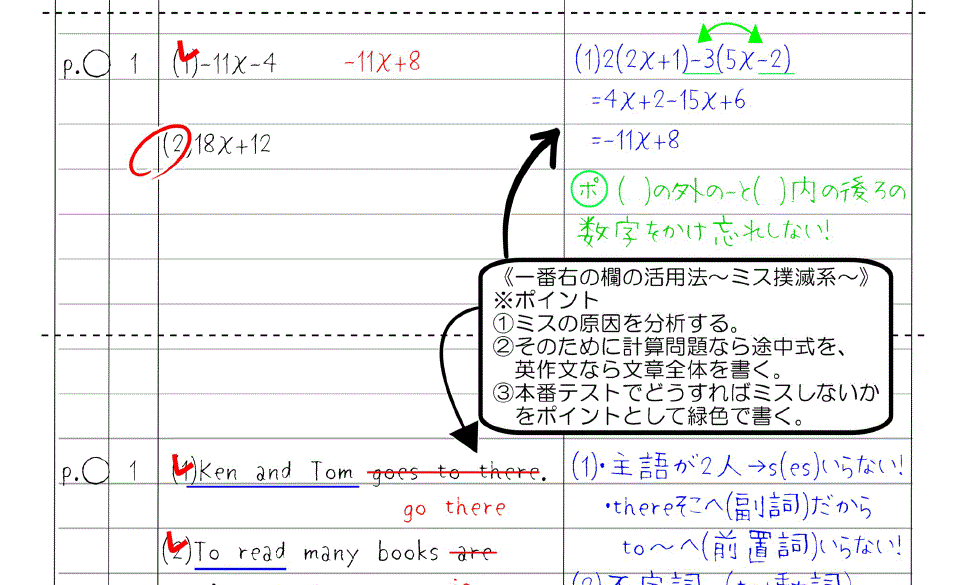 p.○ 1 (1)-11x-4 -11x+8
(2)18x+12
(1)2(2x+1)-3(5x-2)
=4x+2-15x+6
=-11x+8
ポ ( )の外の-と( )内の後ろの
数字をかけ忘れしない!
《一番右の欄の活用法～ミス撲滅系～》
※ポイント
①ミスの原因を分析する。
②そのために計算問題なら途中式を、
英作文なら文章全体を書く。
③本番テストでどうすればミスしないか
をポイントとして緑色で書く。
p.○ 1 (1)Ken and Tom goes to there.
go there
(2)To read many books are
(1)・主語が2人→s(es)いらない!
・thereそこへ(副詞)だから
to～へ(前置詞)いらない!